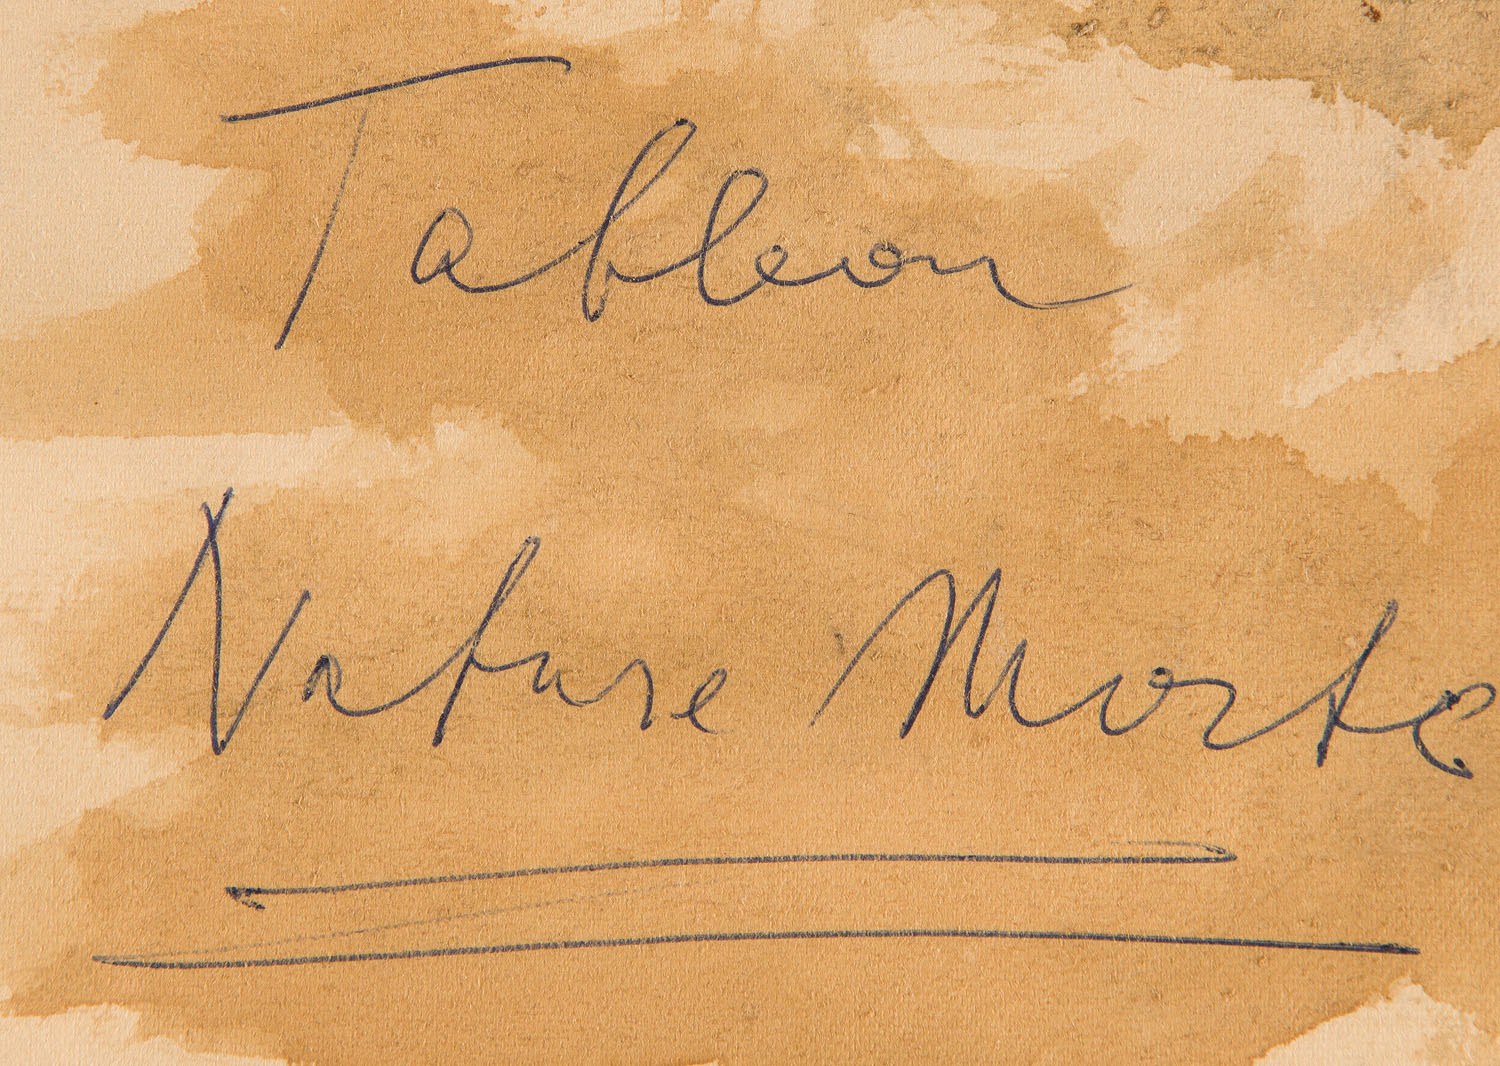 Tableau
Nature Morte